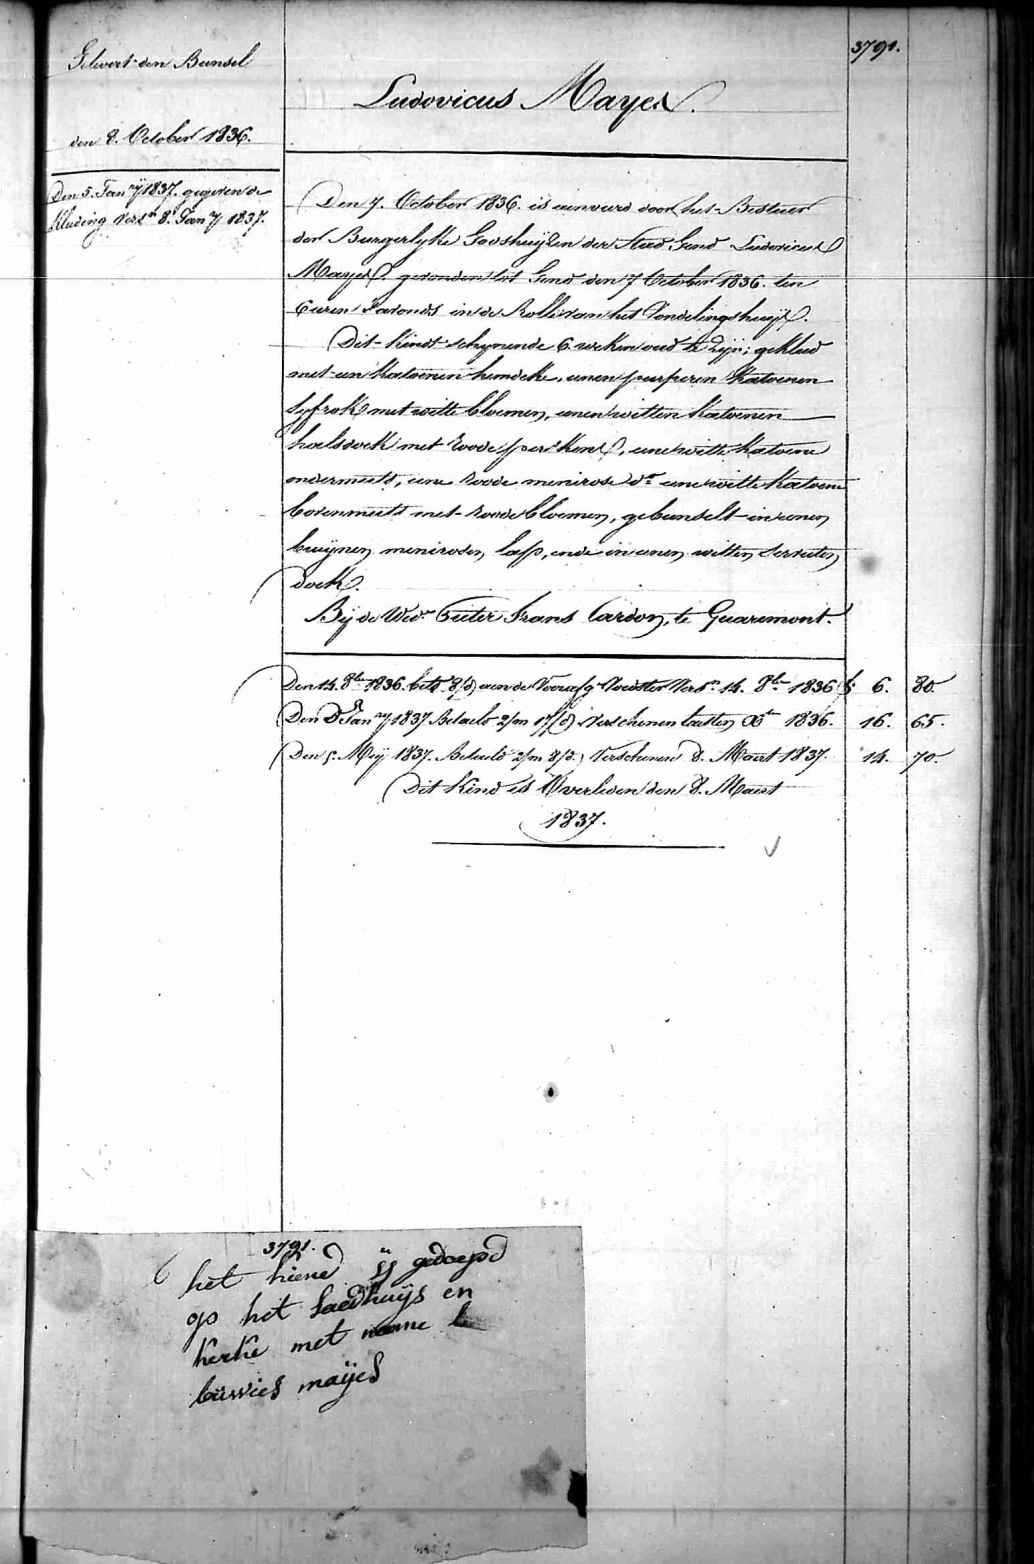 3791.
Gelevert den Bunsel
den 8. October 1836.
Den 5. Jan.ry 1837. gegeven de
Kleeding Vers.n 8. Jan.ry 1837.
Ludovicus Mayes.
Den 7. October 1836. is aenveird door het Bestuer
der Burgerlyke Godshuyzen der Stad Gend Ludovicus
Mayes. gevonden tot Gend den 7 October 1836. ten
6 uren s'avonds in de Rolle van het Vondelingshuys.
Dit kindt schynende 6 weken oud te zyn; gekleed
met een katoenen hemdeke, eenen purperen katoenen
lyfrok met witte bloemen, eenen witten katoenen
halsdoek met roode perkens, eene witte katoene
ondermuts, eene roode menirose d.o eene witte katoene
bovenmuts met roode bloemen, gebunselt in eenen
bruynen menirosen lap, ende in eenen witten servieten
doek.
By de Wed.e Pieter Frans Cardon, te Quaremont.
Den 14. 8.ber 1836. bet. 8/d) aen de Voorafg. Voedster Vers.n 14. 8.ber 1836 6. 80.
Den 5 Jan.ry 1837 Betaelt 2/m 17/d) Verschenen lactsten Xb.er 1836. 16. 65.
Den 5. Mey 1837. Betaelt 2/m 8/d.) Verschenen 8. Maert 1837. 14. 70.
Dit Kind is Overleden den 8. Maert
1837.
3791.
het hiend ys gedoepd
op het Stadhuijs en
kerke met name
luwies maijes